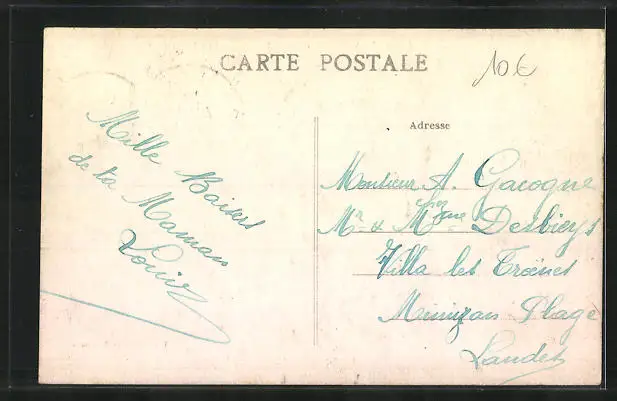 CARTE POSTALE
10 €
Mille Baisers
de ta Maman
Louise
Adresse
Monsieur A. Gacogne
chez
Mr & Mme Desbieys
Villa les Troënes
Mimizan Plage
Landes